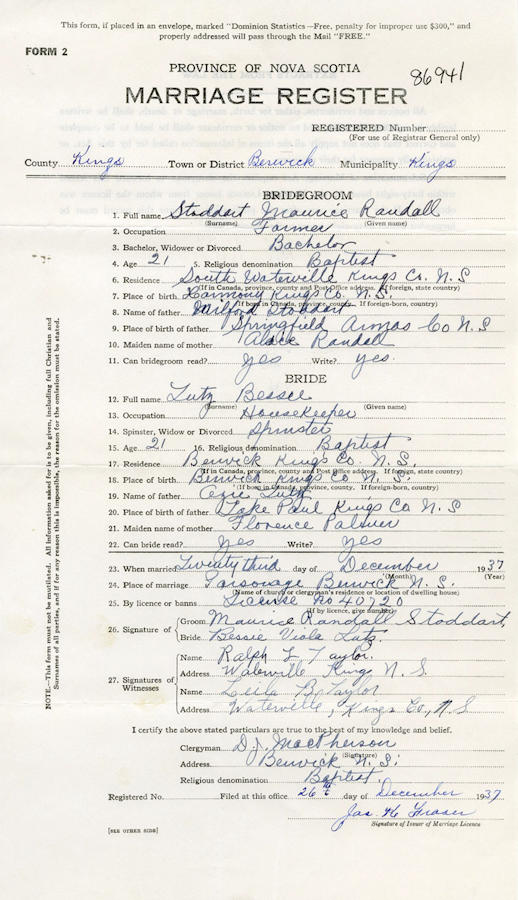 This form, if placed in an envelope, marked "Dominion Statistics—Free, penalty for improper use $300," and
properly addressed will pass through the Mail "FREE."
FORM 2
PROVINCE OF NOVA SCOTIA
86941
MARRIAGE REGISTER
REGISTERED Number
(For use of Registrar General only)
County Kings Town or District Berwick Municipality Kings
BRIDEGROOM
1. Full name Stoddart Maurice Randall
(Surname) (Given name)
2. Occupation Farmer
3. Bachelor, Widower or Divorced Bachelor
4. Age 21 5. Religious denomination Baptist
6. Residence South Waterville Kings Co. N.S
(If in Canada, province, county and Post Office address. If foreign, state country)
7. Place of birth Harmony Kings Co. N.S.
(If born in Canada, province, county. If foreign-born, country)
8. Name of father Wilford Stoddart
9. Place of birth of father Springfield Co N.S
10. Maiden name of mother Randall
11. Can bridegroom read? Yes Write? yes.
BRIDE
12. Full name Lutz Bessie
(Surname) (Given name)
13. Occupation Housekeeper
14. Spinster, Widow or Divorced Spinster
15. Age 21 16. Religious denomination Baptist
17. Residence Berwick Kings Co. N.S.
(If in Canada, province, county and Post Office address. If foreign, state country)
18. Place of birth Berwick Kings Co. N.S.
(If born in Canada, province, county. If foreign-born, country)
19. Name of father Lutz
20. Place of birth of father Lake Paul Kings Co N.S
21. Maiden name of mother Florence Palmer
22. Can bride read? Yes Write? Yes
23. When married Twenty third day of December 1937
(Month) (Year)
24. Place of marriage Parsonage Berwick N.S.
(Name of church or clergyman's residence or location of dwelling house)
25. By licence or banns License No 40720
(If by licence, give number)
26. Signature of
Groom Maurice Randall Stoddart
Bride Bessie Viola Lutz
27. Signatures of Witnesses
Name Ralph L Taylor.
Address Waterville Kings N.S.
Name B. Taylor
Address Waterville, Kings Co., N.S
I certify the above stated particulars are true to the best of my knowledge and belief.
Clergyman D.J. MacPherson
(Signature)
Address Berwick N.S.
Religious denomination Baptist.
Registered No. Filed at this office 26th day of December 1937
Jas H Fraser
Signature of Issuer of Marriage Licence
[SEE OTHER SIDE]
NOTE.—This form must not be mutilated. All information asked for is to be given, including full Christian and
Surnames of all parties, and if for any reason this is impossible, the reason for the omission must be stated.